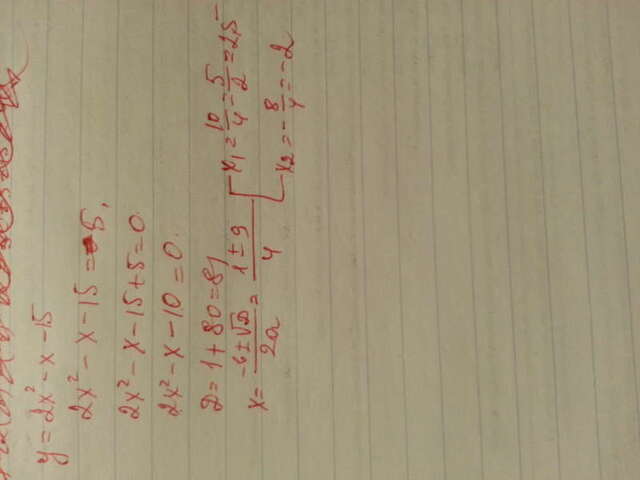 y = 2x² - x - 15
2x² - x - 15 = -5,
2x² - x - 15 + 5 = 0
2x² - x - 10 = 0.
D = 1 + 80 = 81
x = (-b ± √D)/(2a) = (1 ± 9)/4 x₁ = 10/4 = 5/2 = 2,5
x₂ = -8/4 = -2